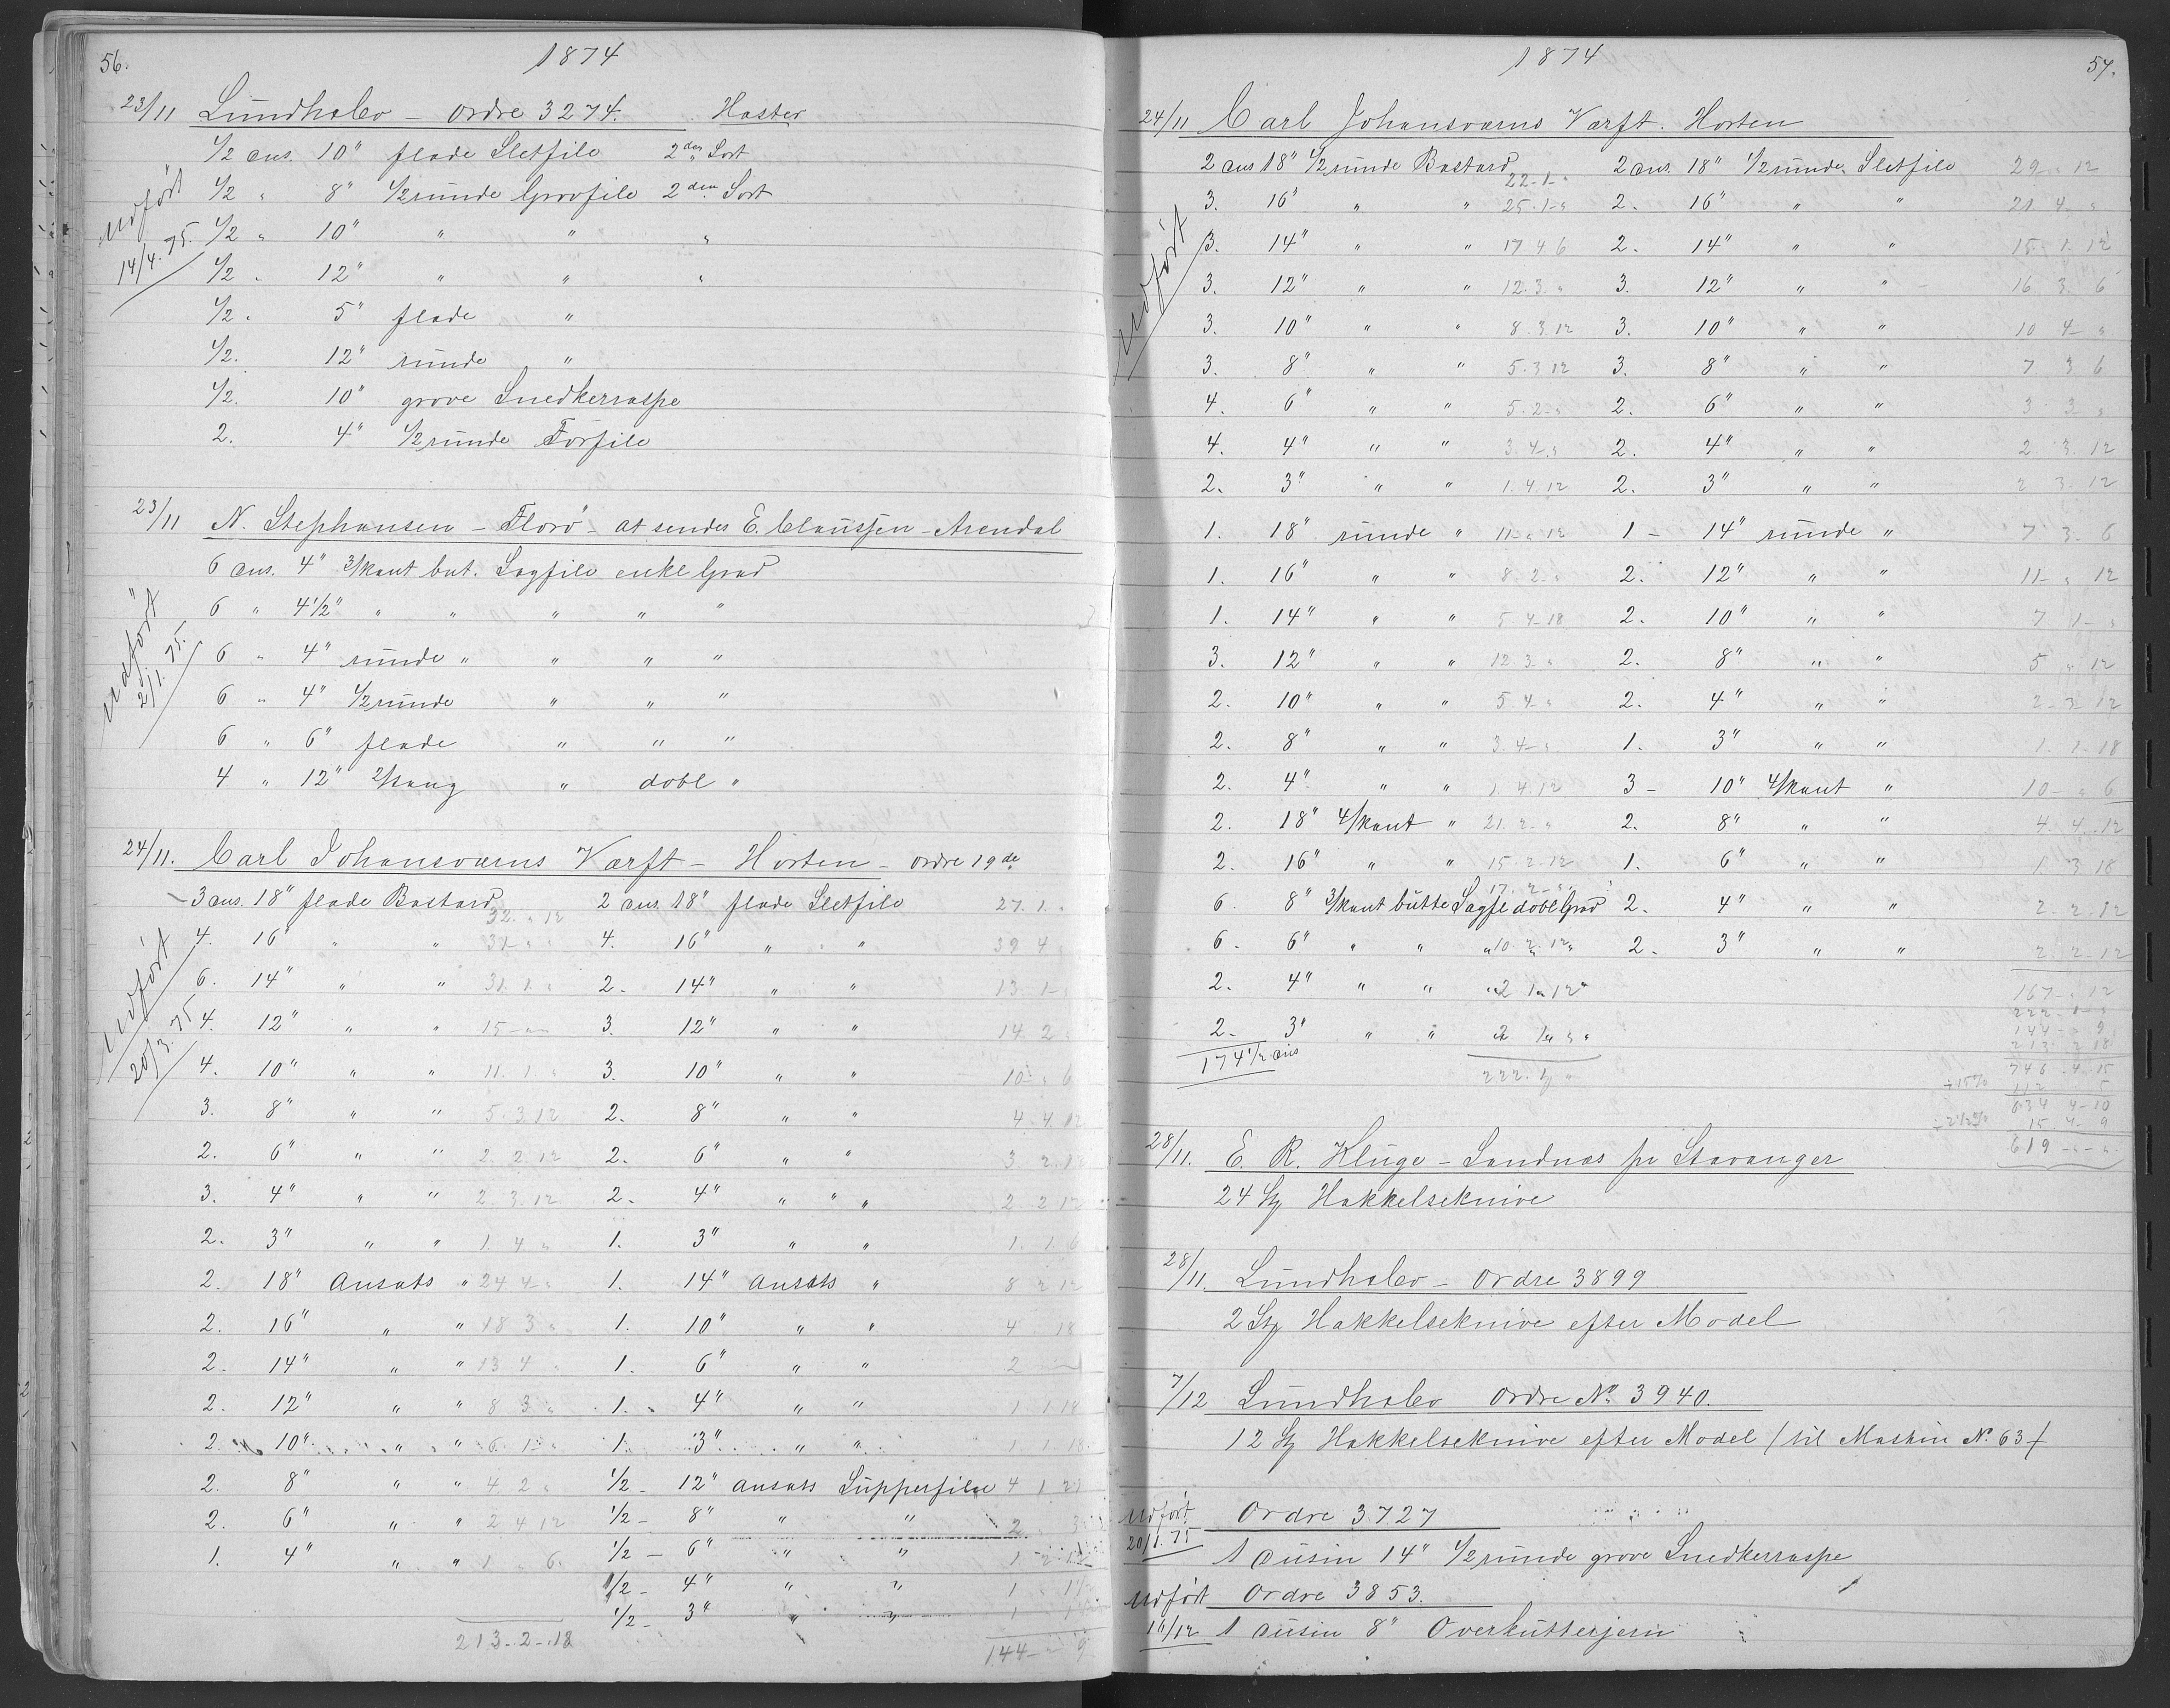 56.
1874
23/11 Lundhalev – Ordre 3274. Haster
1/2 dus. 10" flade Sletfile 2den Sort
1/2 " 8" 1/2 runde Grovfile 2den Sort
1/2 " 10" " " "
1/2 " 12" " " "
1/2 . 5" flade "
1/2 . 12" runde "
1/2 . 10" grove Snedkerraspe
2. 4" 1/2 runde Forfile
Udført 14/4. 75.
23/11 N. Stephansen – Florø – at sendes E. Claussen – Arendal
6 dus. 4" 3/kant but. Sagfile enkl Grad
6 " 4 1/2" " " " " "
6 " 4" runde " " " "
6 " 4" 1/2 runde " " "
6 " 6" flade " " "
4 " 12" " dobl "
udført 2/1. 75.
24/11. Carl Johansværns Værft – Horten – ordre 19de
3 dus. 18" flade Bastard 32 " 12 2 dus. 18" flade Sletfile 27. 1. "
4. 16" " " 4. 16" " " 39 4 "
6. 14" " " 31. 1. " 2. 14" " " 13. 1– "
4. 12" " " 15 – " – 3. 12" " " 14. 2 "
4. 10" " " 11. 1 " 3. 10" " " 10 " 6
3. 8" " " 5. 3. 12 2. 8" " " 4. 4. 12
2. 6" " " 2. 2. 12 2. 6" " " 3. 2. 12
3. 4" " " 2. 3. 12 2. 4" " " " 2 2 12
2. 3" " " 1. 4 " 1. 3" " " 1. 1. 6
2. 18" Ansats " 24 4– " 1. 14" Ansats " 8 2 12
2. 16" " " 18 3 " 1. 10" " " 4 18
2. 14" " " 13 4 " 1. 6" " " 2
2. 12" " " 8 3 " 1. 4" " " 1 1 18
2. 10" " " 6 1– " 1. 3" " " 1 1 18
2. 8" " " 4 2 " 1/2 – 12" ansats Supperfile 4 1
2. 6" " " 2 4 12 1/2 – 8" " " 2 3
1. 4" " " 1 " 6 1/2 – 6" " "
1/2 – 4" " " 1
1/2 – 3" " "
213. 2 – 18 144 – " 9
Udført 20/3. 75
1874
57.
24/11 Carl Johansværns Værft. Horten
2 dus 18" 1/2 runde Bastard 22–1–" 2 dus. 18" 1/2 runde Sletfile 29 " 12
3. 16" " " 25. 1– " 2. 16" " " 21. 4 "
3. 14" " " 17 4 6 2. 14" " " 15. 1. 12
3. 12" " " 12. 3. " 3. 12" " " 16. 3. 6
3. 10" " " 8. 3 12 3. 10" " " 10 4– "
3. 8" " " 5. 3 12 3. 8" " " 7 3 6
4. 6" " " 5. 2– " 2. 6" " " 3 3 "
4. 4" " " 3. 4– " 2. 4" " " 2 3. 12
2. 3" " " 1. 4. 12 2. 3" " " 2 3. 12
1. 18" runde " 11– " 12 1 – 14" runde " 7 3. 6
1. 16" " " 8. 2– " 2. 12" " " 11– " 12
1. 14" " " 5. 4–18 2. 10" " " 7 1– "
3. 12" " " 12 3 " 2. 8" " " 5 " 12
2. 10" " " 5. 4– " 2. 4" " " 2– 3– 12
2. 8" " " 3. 4– " 1. 3" " " 1. 1– 18
2. 4" " " 1. 4. 12 3 – 10" 4/kant " 10 – " 6
2. 18" 4/kant " 21. 2– " 2. 8" " " 4 4. 12
2. 16" " " 15– 2–12 1. 6" " " 1 3 18
6. 8" 3/kant butte Sagfl dobl Grad 17. 2– " 2. 4" " " 2– 2– 12
6 – 6" " " " 10. 2. 12 " 2 – 3" " " 2. 2– 12
2. 4" " " " 2 1 " 12 " 167– " 12
2 – 3" " " 222– 1– "
174 1/2 dus 222. 1 " 144– " 9
213 2 18
746 4 15
÷15% 112 5
634 4–10
÷2 1/2% 15 4– 9
619 – " – "
udført
28/11. E. R. Kluge – Sandnæs pr Stavanger
24 St Hakkelseknive
28/11. Lundhalev – Ordre 3899
2 St Hakkelseknive efter Model
7/12 Lundhalev Ordre No. 3940.
12 St Hakkelseknive efter Model /til Maskin No. 63/
Udført 20/1. 75 Ordre 3727
1 Dusin 14" 1/2 runde grove Snedkerraspe
Udført 16/12 Ordre 3853.
1 Dusin 8" Overkutterjern